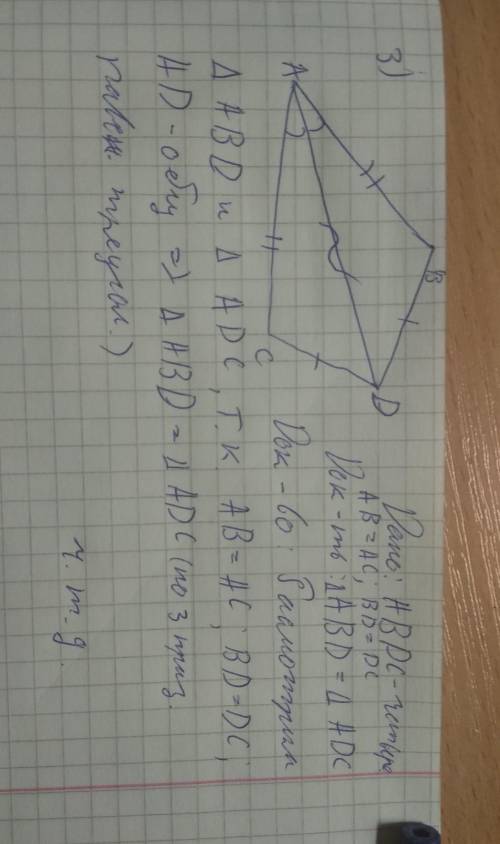 3)
A
B
C
D
Дано: ABDC - четыре
AB = AC; BD = DC
Док-ть: Δ ABD = Δ ADC
Док-во: Рассмотрим
Δ ABD и Δ ADC, т.к. AB = AC; BD = DC;
AD - общ => Δ ABD = Δ ADC (по 3 приз.
равен. треугол.)
ч.т.д.